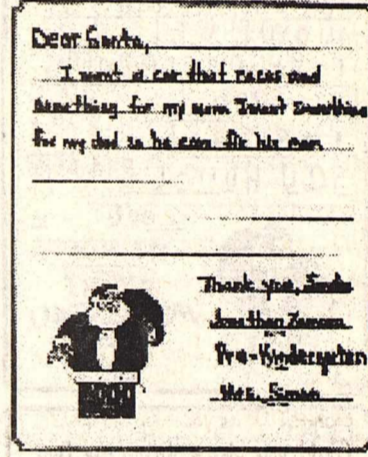 Dear Santa,
I want a car that races and
something for my mom I want something
for my dad so he can fix his
Thank you, Santa
Jonathan
Pre-Kindergarten
Mrs. Simon